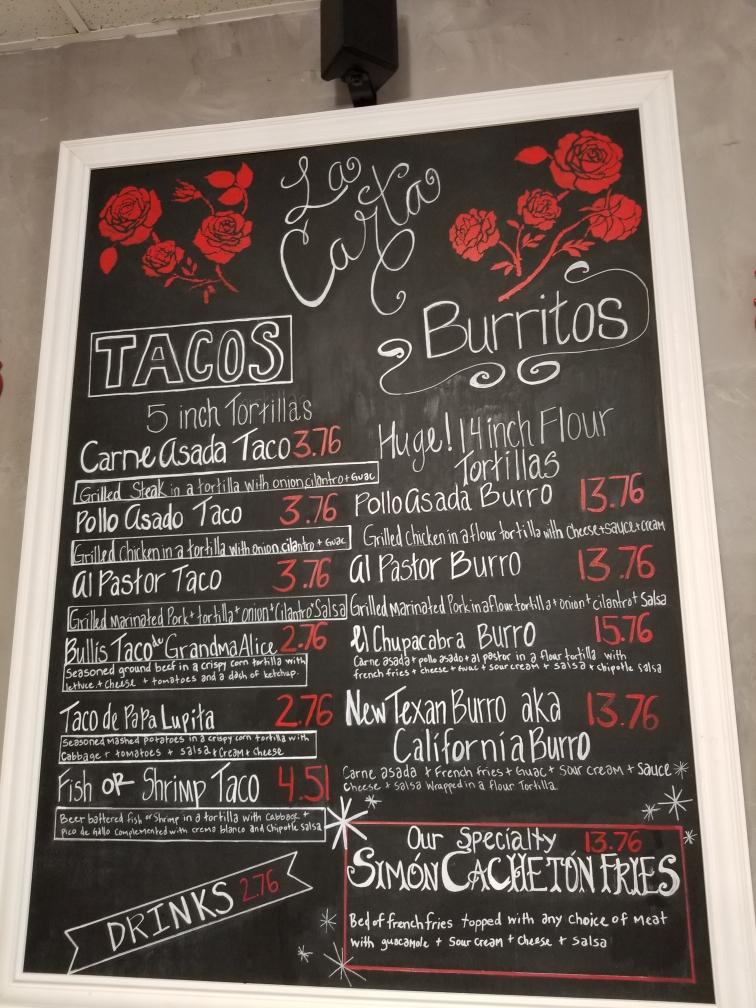 La
Carta
TACOS
5 inch Tortillas
Carne Asada Taco 3.76
Grilled Steak in a tortilla with onion cilantro + Guac
Pollo Asado Taco 3.76
Grilled Chicken in a tortilla with onion cilantro + Guac
al Pastor Taco 3.76
Grilled Marinated Pork + tortilla + onion + Cilantro + Salsa
Bullis Taco de GrandmaAlice 2.76
Seasoned ground beef in a crispy corn tortilla with
lettuce + cheese + tomatoes and a dash of ketchup.
Taco de Papa Lupita 2.76
Seasoned Mashed potatoes in a crispy corn tortilla with
Cabbage + tomatoes + salsa + Cream + Cheese
Fish OR Shrimp Taco 4.51
Beer battered fish or Shrimp in a tortilla with Cabbage +
Pico de Gallo Complemented with crema blanco and Chipotle salsa
DRINKS 2.76
Burritos
Huge! 14 inch Flour
Tortillas
Pollo Asada Burro 13.76
Grilled Chicken in a flour tortilla with Cheese + Sauce + cream
al Pastor Burro 13.76
Grilled Marinated Pork in a flour tortilla + onion + cilantro + Salsa
el Chupacabra Burro 15.76
Carne asada + pollo asado + al pastor in a flour tortilla with
french fries + cheese + Guac + sour cream + salsa + chipotle salsa
New Texan Burro aka 13.76
California Burro
Carne asada + French fries + Guac + Sour cream + Sauce
Cheese + Salsa Wrapped in a flour Tortilla
Our Specialty 13.76
SIMÓN CACHETÓN FRIES
Bed of french fries topped with any choice of Meat
with guacamole + Sour Cream + Cheese + Salsa